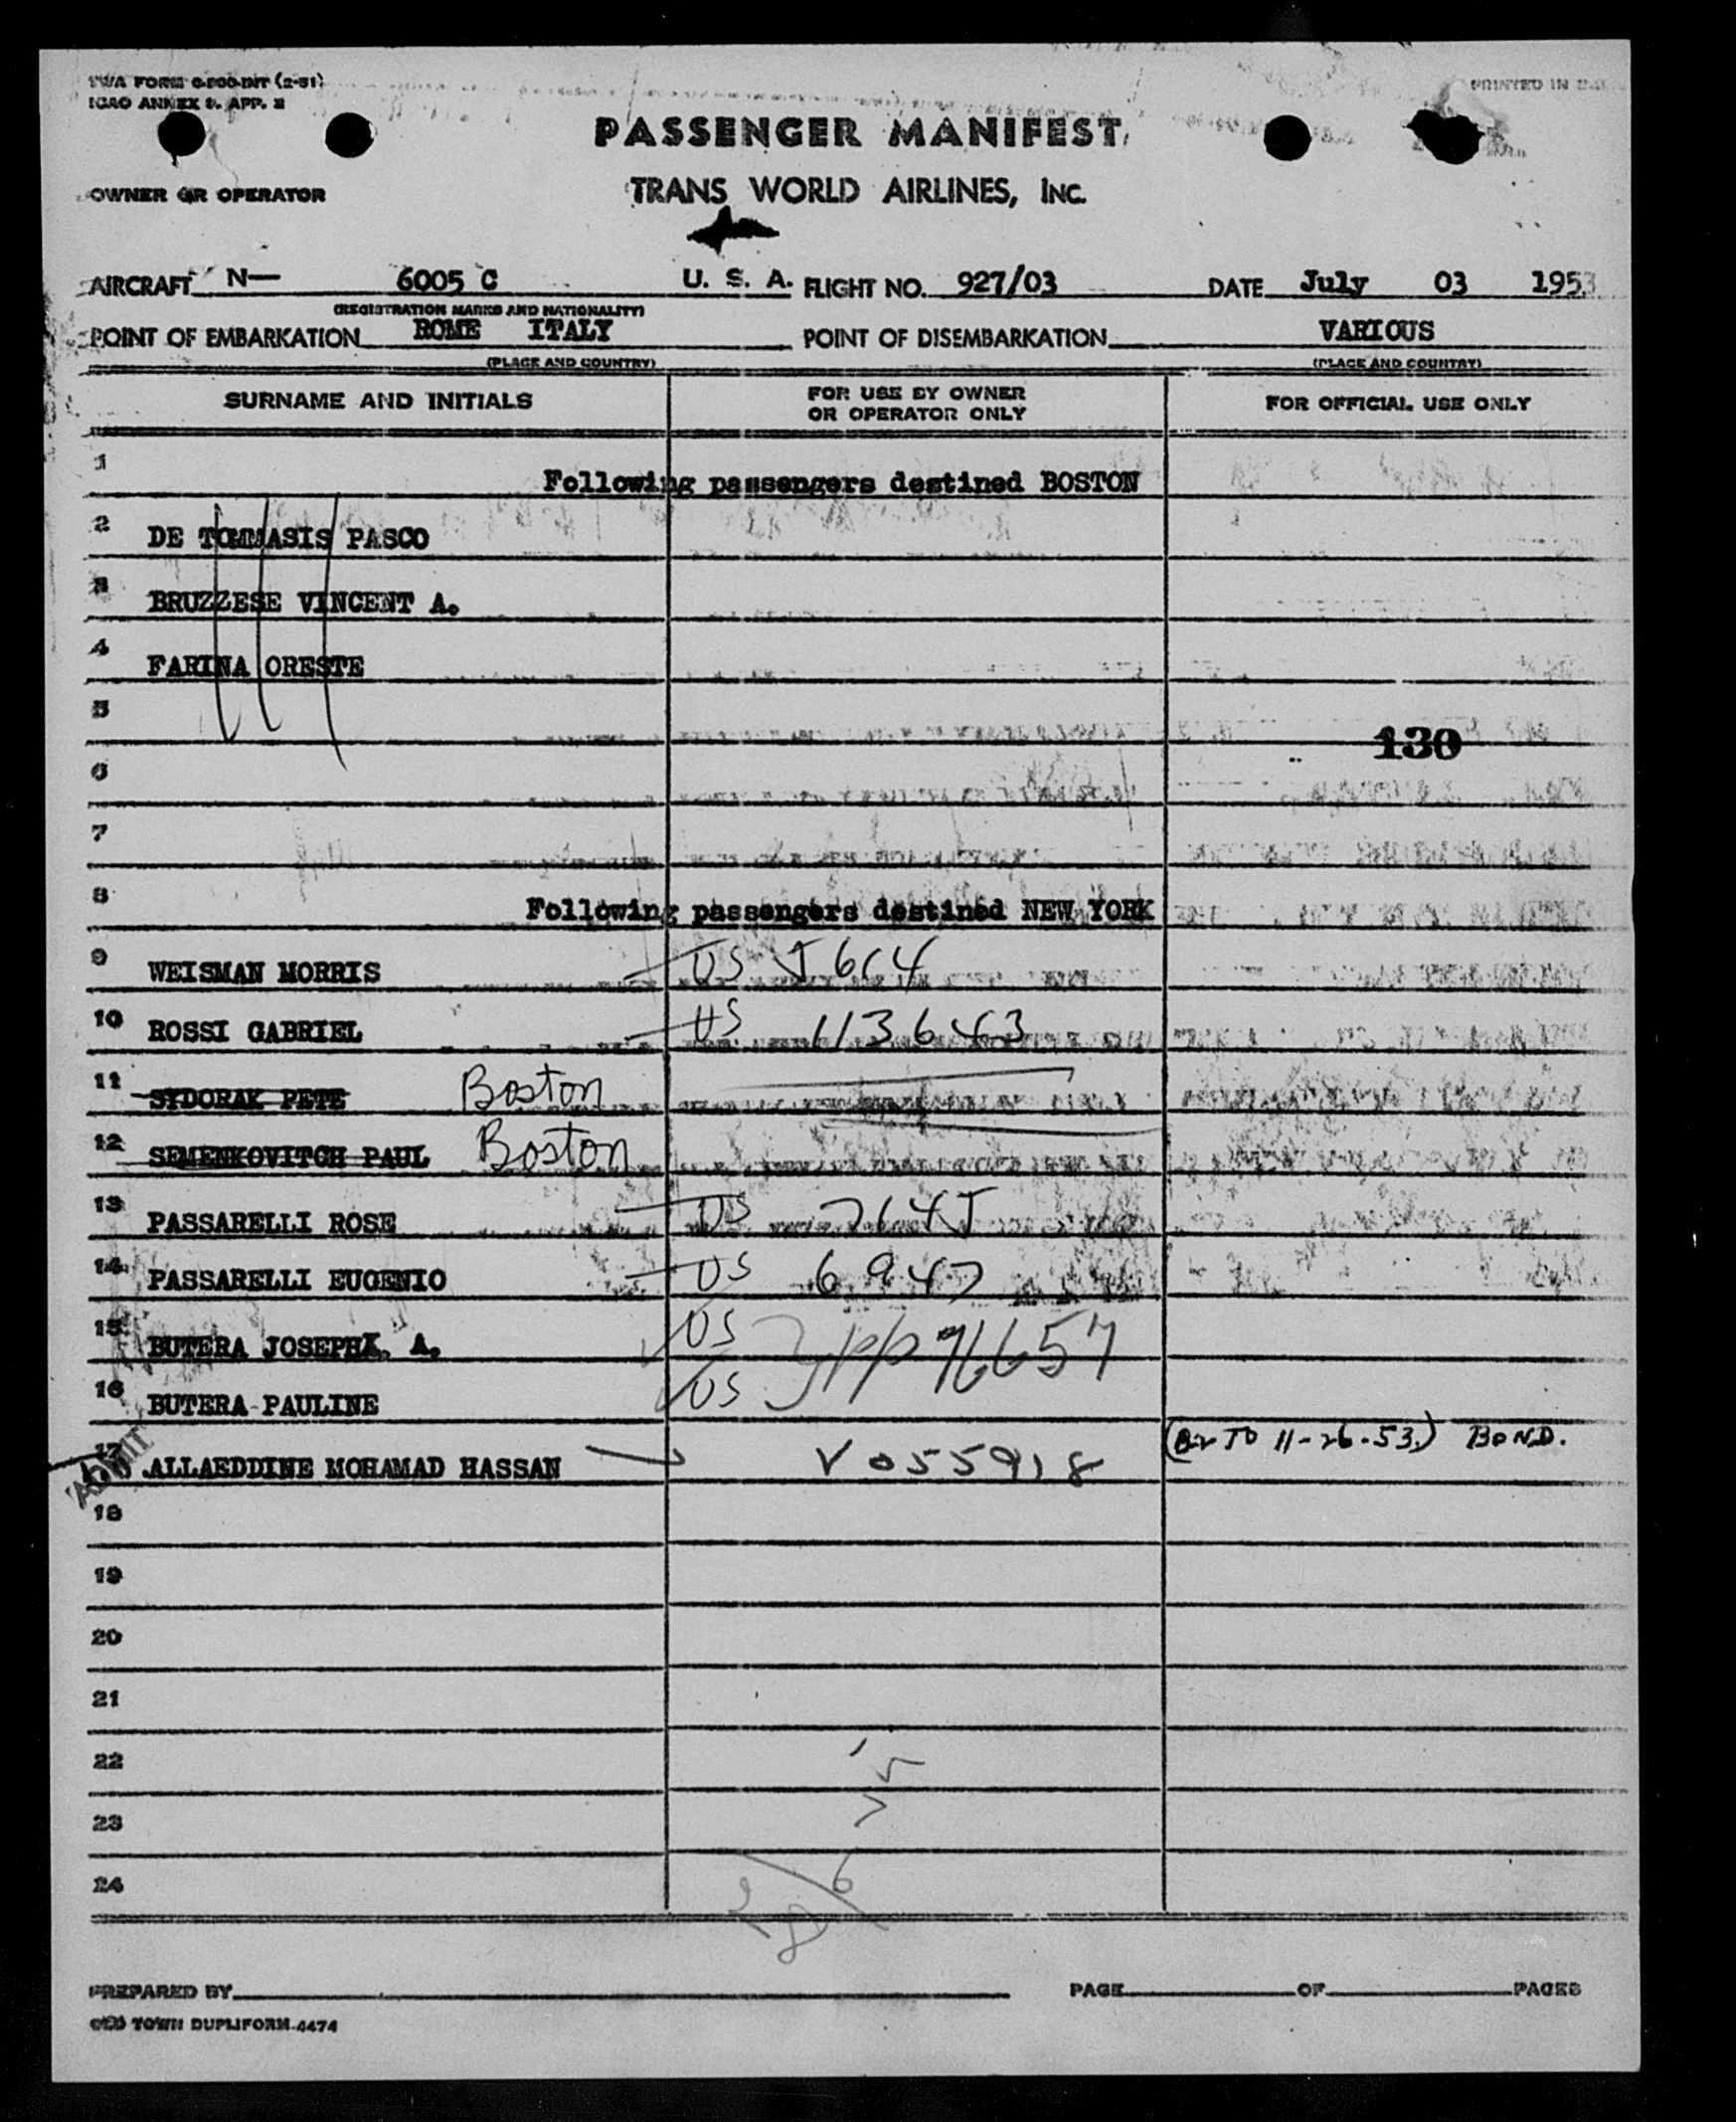 TWA FORM
ICAO ANNEX 9. APP. 2
PRINTED IN
PASSENGER MANIFEST
OWNER OR OPERATOR
TRANS WORLD AIRLINES, INC.
AIRCRAFT N— 6005 C U. S. A. FLIGHT NO. 927/03 DATE July 03 1953
(REGISTRATION MARKS AND NATIONALITY)
POINT OF EMBARKATION ROME ITALY POINT OF DISEMBARKATION VARIOUS
(PLACE AND COUNTRY) (PLACE AND COUNTRY)
SURNAME AND INITIALS FOR USE BY OWNER OR OPERATOR ONLY FOR OFFICIAL USE ONLY
1 Following passengers destined BOSTON
2 DE TOMMASIS PASCO
3 BRUZZESE VINCENT A.
4 FARINA ORESTE
5
130
6
7
8 Following passengers destined NEW YORK
9 WEISMAN MORRIS US 5614
10 ROSSI GABRIEL US 113643
11 SYDORAK PETE Boston
12 SEMENKOVITCH PAUL Boston
13 PASSARELLI ROSE US 7145
14 PASSARELLI EUGENIO US 6947
15 BUTERA JOSEPH A. US
16 BUTERA PAULINE US
17 ALLAEDDINE MOHAMAD HASSAN V055918 (B2 TO 11-26-53) BOND.
ADMIT
18
19
20
21
22
23
24
PREPARED BY PAGE OF PAGES
OLD TOWN DUPLIFORM 4474